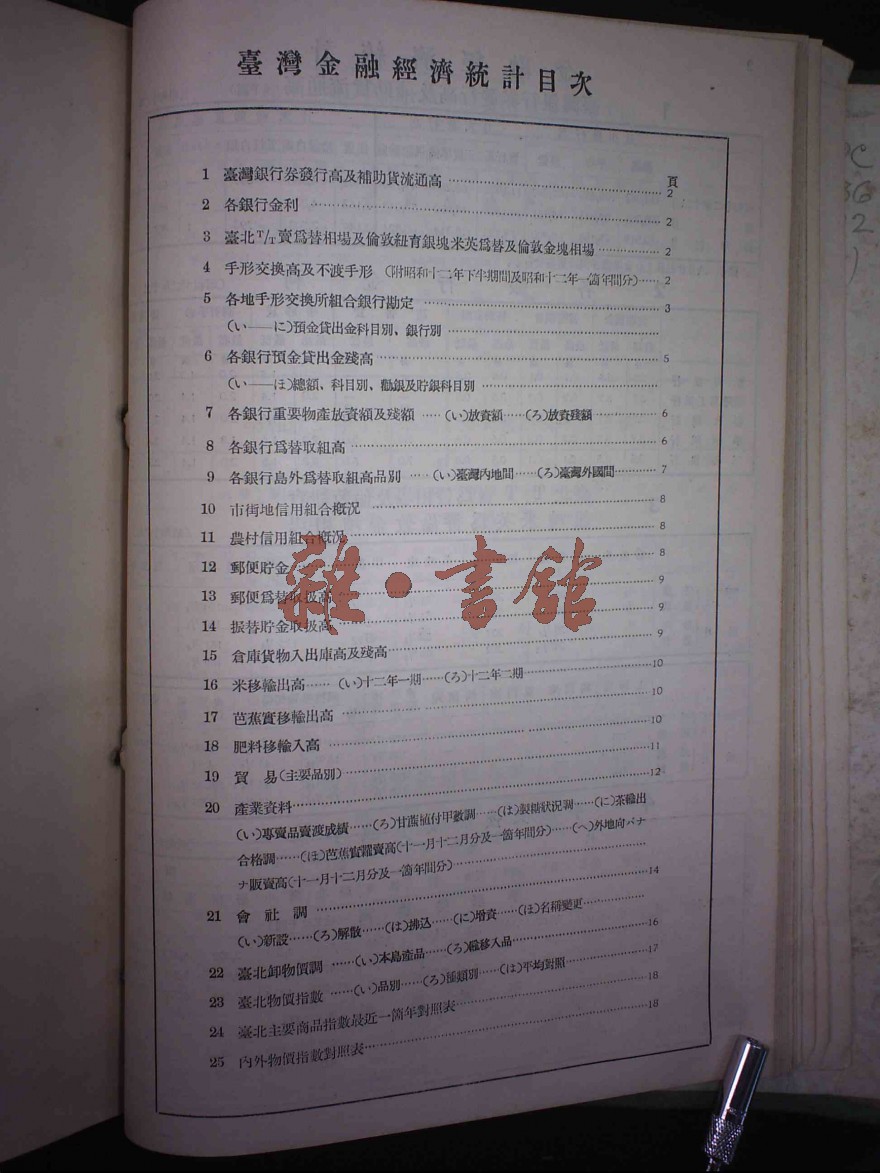 臺灣金融經濟統計目次
頁
1 臺灣銀行券發行高及補助貨流通高 …… 2
2 各銀行金利 …… 2
3 臺北T/T賣爲替相場及倫敦紐育銀塊米英爲替及倫敦金塊相場 …… 2
4 手形交換高及不渡手形 (附昭和十二年下半期間及昭和十二年一箇年間分) …… 2
5 各地手形交換所組合銀行勘定 …… 3
(い――に)預金貸出金科目別、銀行別 ……
6 各銀行預金貸出金殘高 …… 5
(い――ほ)總額、科目別、勸銀及貯銀科目別 ……
7 各銀行重要物產放資額及殘額 ……(い)放資額……(ろ)放資殘額 …… 6
8 各銀行爲替取組高 …… 6
9 各銀行島外爲替取組高品別 ……(い)臺灣內地間……(ろ)臺灣外國間 …… 7
10 市街地信用組合概況 …… 8
11 農村信用組合概況 …… 8
12 郵便貯金 …… 8
13 郵便爲替取扱高 …… 9
14 振替貯金取扱高 …… 9
15 倉庫貨物入出庫高及殘高 …… 9
16 米移輸出高 ……(い)十二年一期……(ろ)十二年二期 …… 10
17 芭蕉實移輸出高 …… 10
18 肥料移輸入高 …… 10
19 貿易(主要品別) …… 11
20 產業資料 …… 12
(い)專賣品賣渡成績……(ろ)甘蔗植付甲數調……(は)製糖狀況調……(に)茶輸出
合格調……(ほ)芭蕉實糶賣高(十一月十二月分及一箇年間分)……(へ)外地向バナ
ナ販賣高(十一月十二月分及一箇年間分) ……
21 會社調 …… 14
(い)新設……(ろ)解散……(は)拂込……(に)增資……(ほ)名稱變更 ……
22 臺北卸物價調 ……(い)本島產品……(ろ)輸移入品 …… 16
23 臺北物價指數 ……(い)品別……(ろ)種類別……(は)平均對照 …… 17
24 臺北主要商品指數最近一箇年對照表 …… 18
25 內外物價指數對照表 …… 18
雜·書館